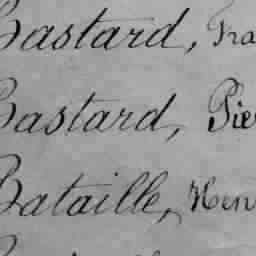 Bastard, Fra
Bastard, Pie
Bataille, Hen